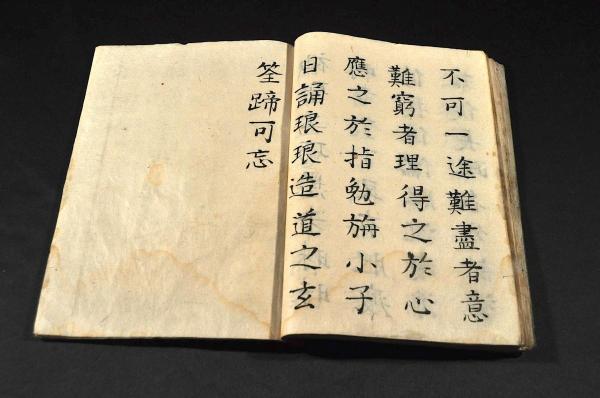 不可一途難盡者意
難窮者理得之於心
應之於指勉旃小子
日誦琅琅造道之玄
筌蹄可忘